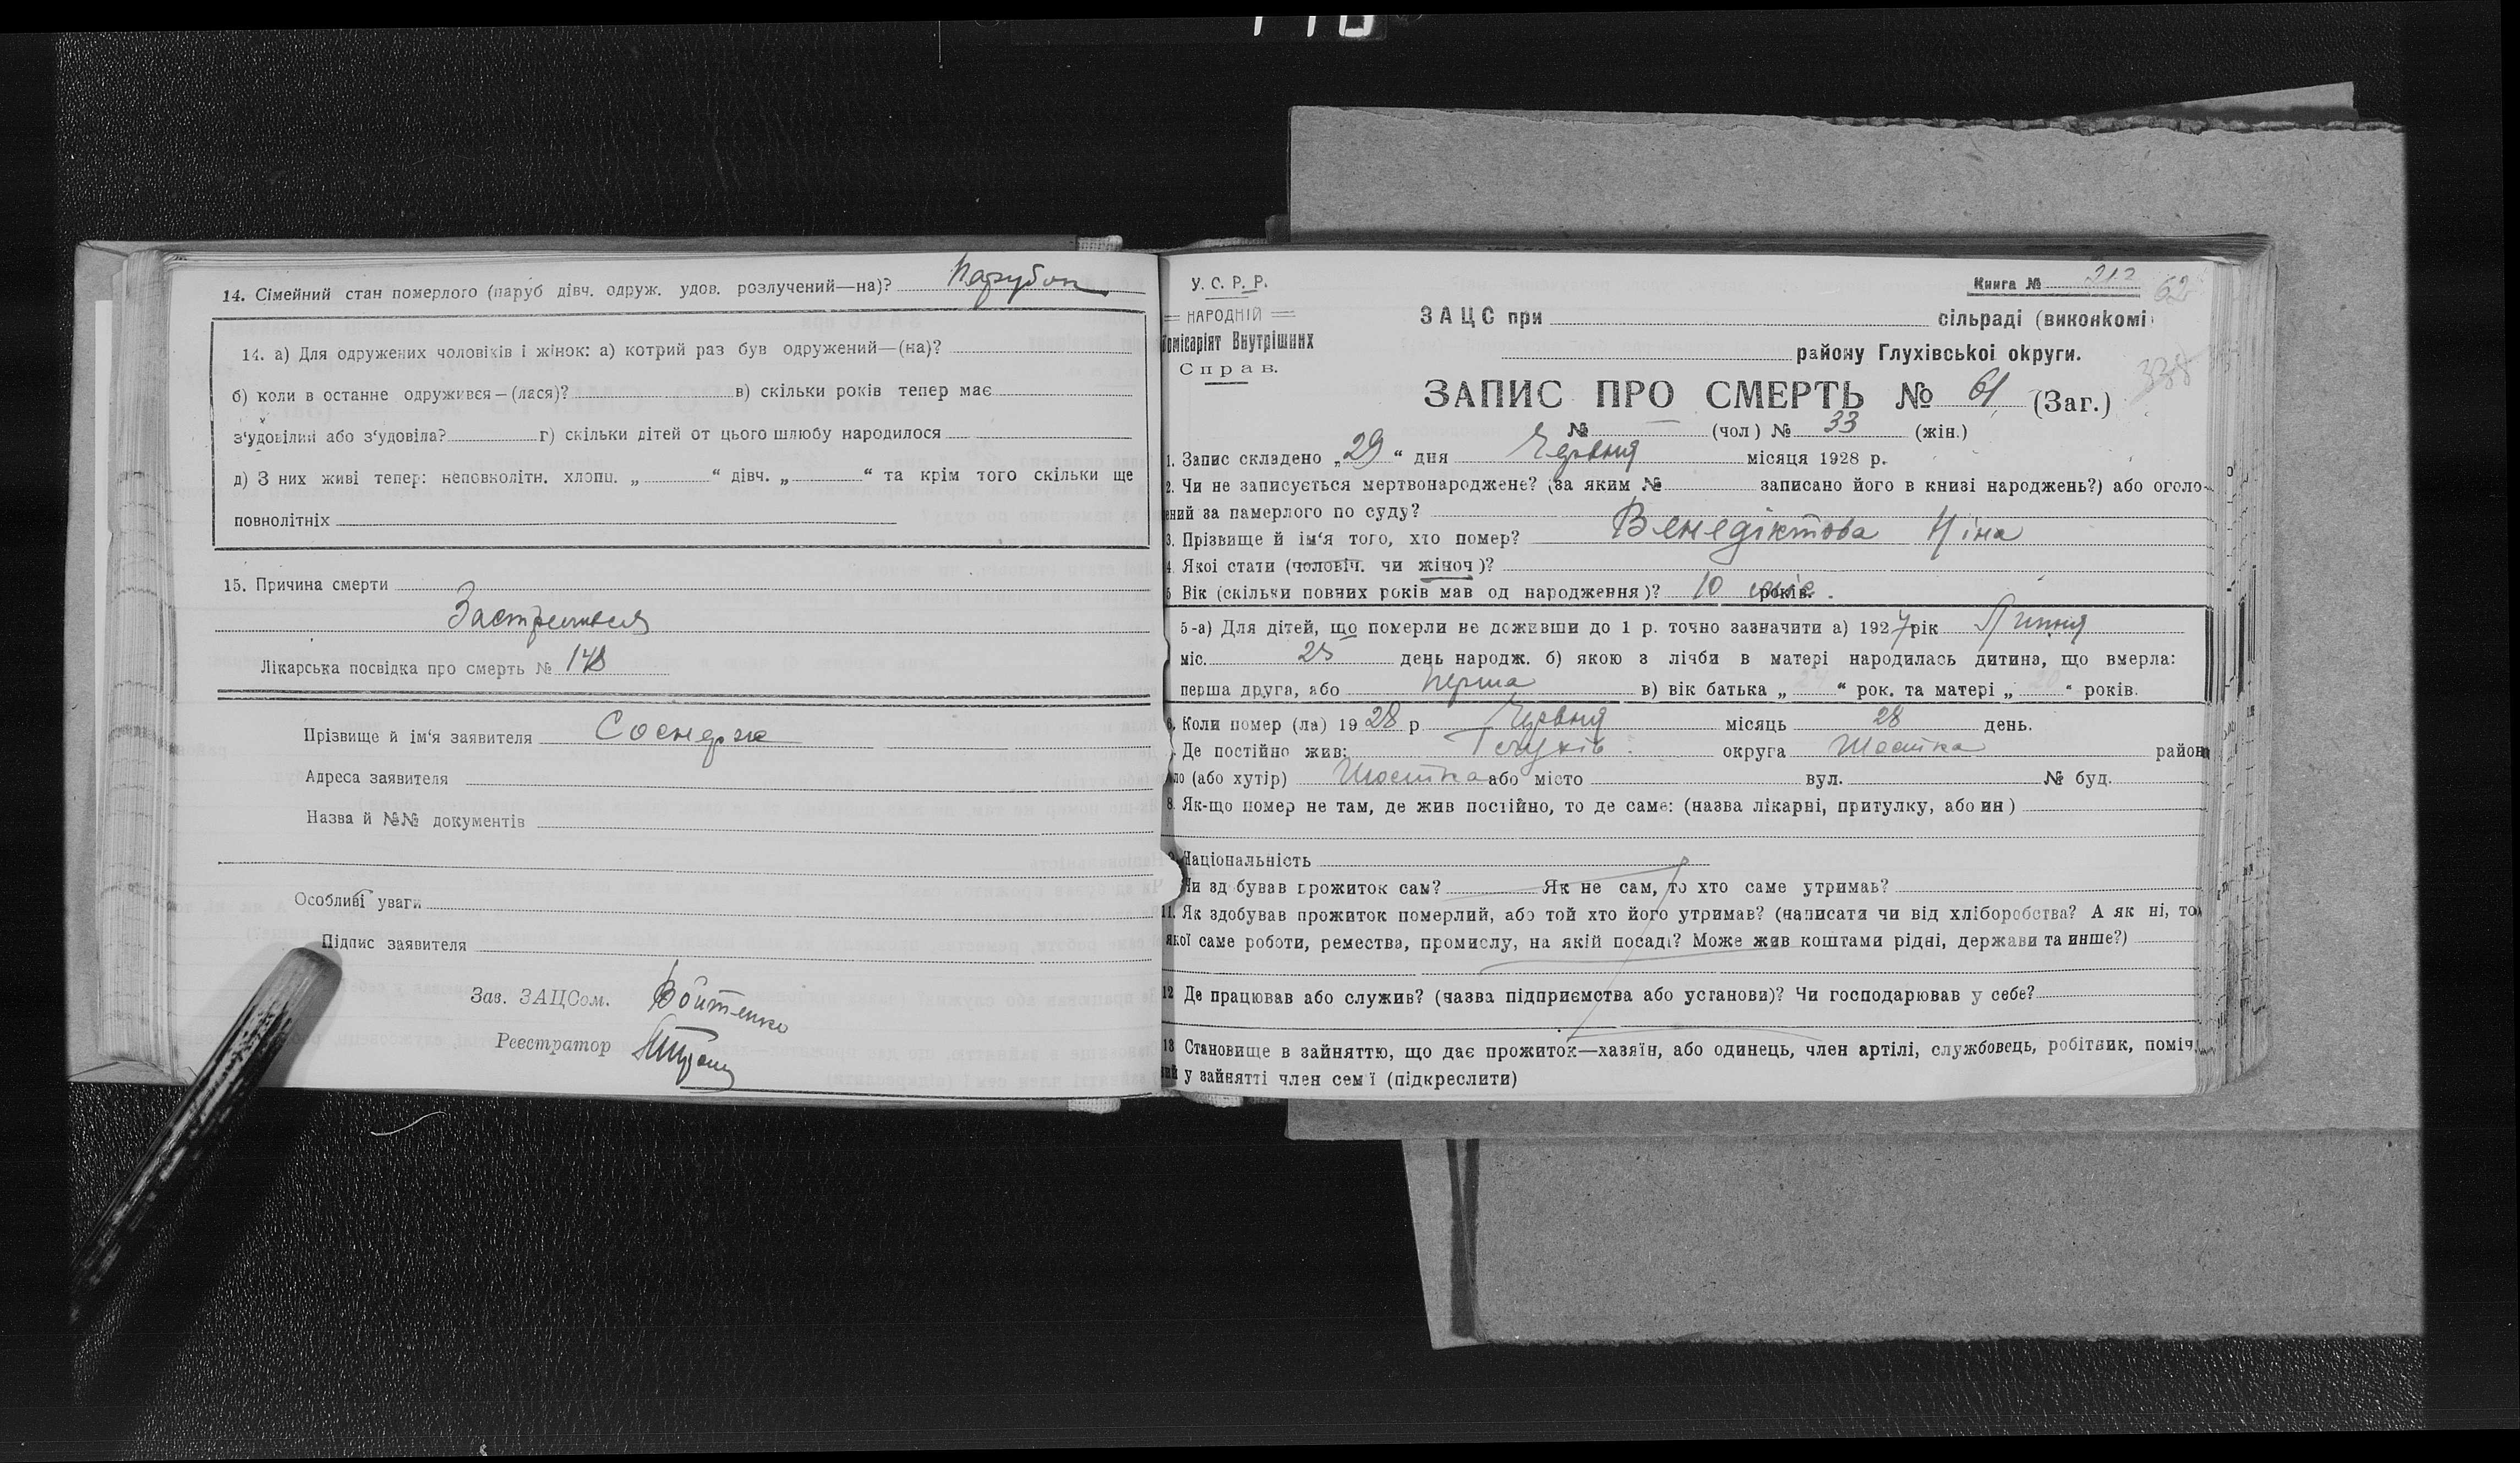 14. Сімейний стан померлого (паруб дівч. одруж. удов. розлучений—на)? Парубок
14. а) Для одружених чоловіків і жінок: а) котрий раз був одружений—(на)?
б) коли в останнє одружився—(лася)? в) скільки років тепер має
з‘удовілий або з‘удовіла? г) скільки дітей от цього шлюбу народилося
д) З них живі тепер: неповнолітн. хлопц. „ “ дівч. „ “ та крім того скільки ще
повнолітніх
15. Причина смерти
Застрелився
Лікарська посвідка про смерть № 148
Прізвище й ім‘я заявителя
Адреса заявителя
Назва й №№ документів
Особливі уваги
Підпис заявителя
Зав. ЗАЦСом. Войтенко
Реєстратор
У. С. Р. Р.
НАРОДНІЙ
Комісаріят Внутрішних
Справ.
Книга № 212 62
ЗАЦС при сільраді (виконкомі
району Глухівської округи.
338
ЗАПИС ПРО СМЕРТЬ № 61 (Заг.)
№ — (чол) № 33 (жін.)
1. Запис складено „29“ дня Червня місяця 1928 р.
2. Чи не записується мертвонароджене? (за яким № записано його в книзі народжень?) або оголо-
ений за памерлого по суду?
3. Прізвище й ім‘я того, хто помер? Венедіктова Ніна
4. Якої стати (чоловіч. чи жіноч)?
5 Вік (скільки повних років мав од народження)? 10 років.
5-а) Для дітей, що померли не доживши до 1 р. точно зазначити а) 1927 рік Липня
міс. 25 день народж. б) якою з лічби в матері народилась дитина, що вмерла:
перша друга, або перша в) вік батька „ “ рок. та матері „ “ років.
6. Коли помер (ла) 1928 р Червня місяць 28 день.
Де постійно жив: Глухів округа Шостка район
ло (або хутір) Шостка або місто вул. № буд.
8. Як-що помер не там, де жив постійно, то де саме: (назва лікарні, притулку, або ин)
Національність
Чи здобував прожиток сам? Як не сам, то хто саме утримав?
11. Як здобував прожиток померлий, або той хто його утримав? (написати чи від хліборобства? А як ні, то
якої саме роботи, ремества, промислу, на якій посаді? Може жив коштами рідні, держави та инше?)
12 Де працював або служив? (назва підприємства або установи)? Чи господарював у себе?
13 Становище в зайняттю, що дає прожиток—хазяїн, або одинець, член артілі, службовець, робітник, поміч
ний у зайнятті член сем‘ї (підкреслити)